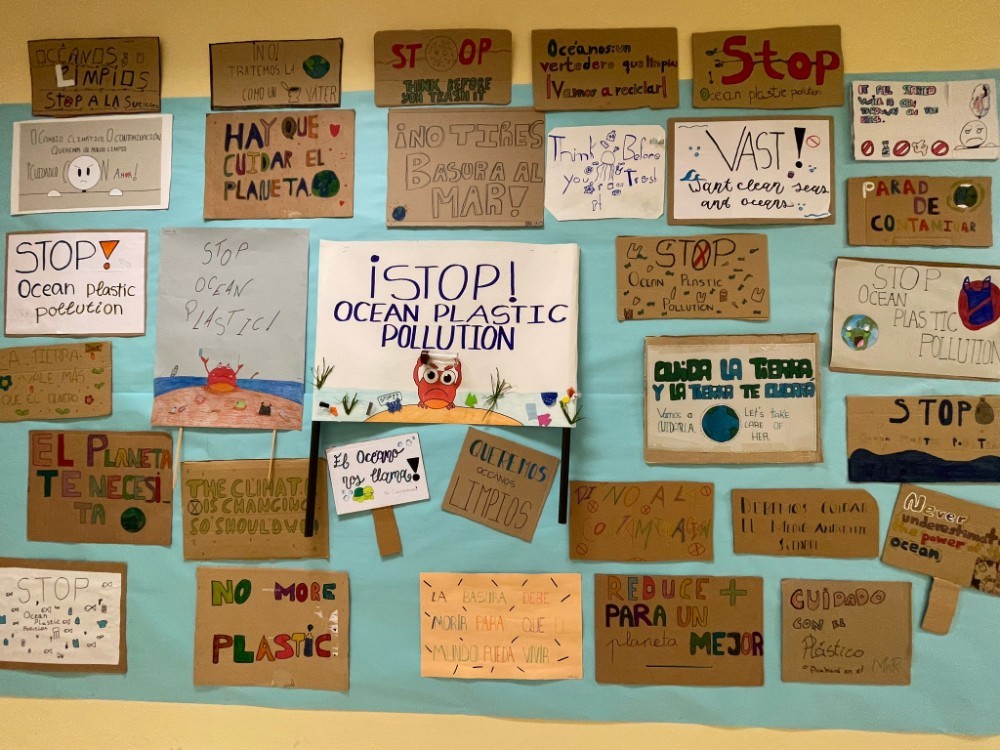 OCÉANOS
LIMPIOS
STOP A LA
¡NO!
TRATEMOS LA
COMO UN WATER
STOP
THINK BEFORE
YOU TRASH IT
Océanos:un
vertedero que limpiar
¡Vamos a reciclar!
Stop
Ocean plastic pollution
O CAMBIO CLIMÁTICO O CONTAMINACIÓN
QUEREMOS UN MUNDO LIMPIO
¡CUIDADO
HAY QUE
CUIDAR EL
PLANETA
¡NO TIRES
BASURA AL
MAR!
Think Before
you Trash
it
VAST!
Want clean seas
and oceans
PARAD
DE
CONTAMINAR
STOP!
Ocean plastic
pollution
STOP
OCEAN
PLASTIC!
¡STOP!
OCEAN PLASTIC
POLLUTION
STOP
OCEAN PLASTIC
POLLUTION
STOP
OCEAN
PLASTIC
POLLUTION
LA TIERRA
VALE MÁS
QUE EL DINERO
CUIDA LA TIERRA
Y LA TIERRA TE CUIDARÁ
Vamos a
CUIDARLA
LET'S TAKE
CARE OF
HER
STOP
EL PLANETA
TE NECESI
TA
THE CLIMATE
IS CHANGING
SO SHOULD WE
El Océano
nos llama!
QUEREMOS
OCÉANOS
LIMPIOS
DI NO A LA
CONTAMINACIÓN
DEBEMOS CUIDAR
EL MEDIO AMBIENTE
SIEMPRE
Never
underestimate
the power of the
ocean
STOP
Ocean
Plastic
Pollution
NO MORE
PLASTIC
LA BASURA DEBE
MORIR PARA QUE EL
MUNDO PUEDA VIVIR
REDUCE +
PARA UN
planeta MEJOR
CUIDADO
CON EL
Plástico
MAR